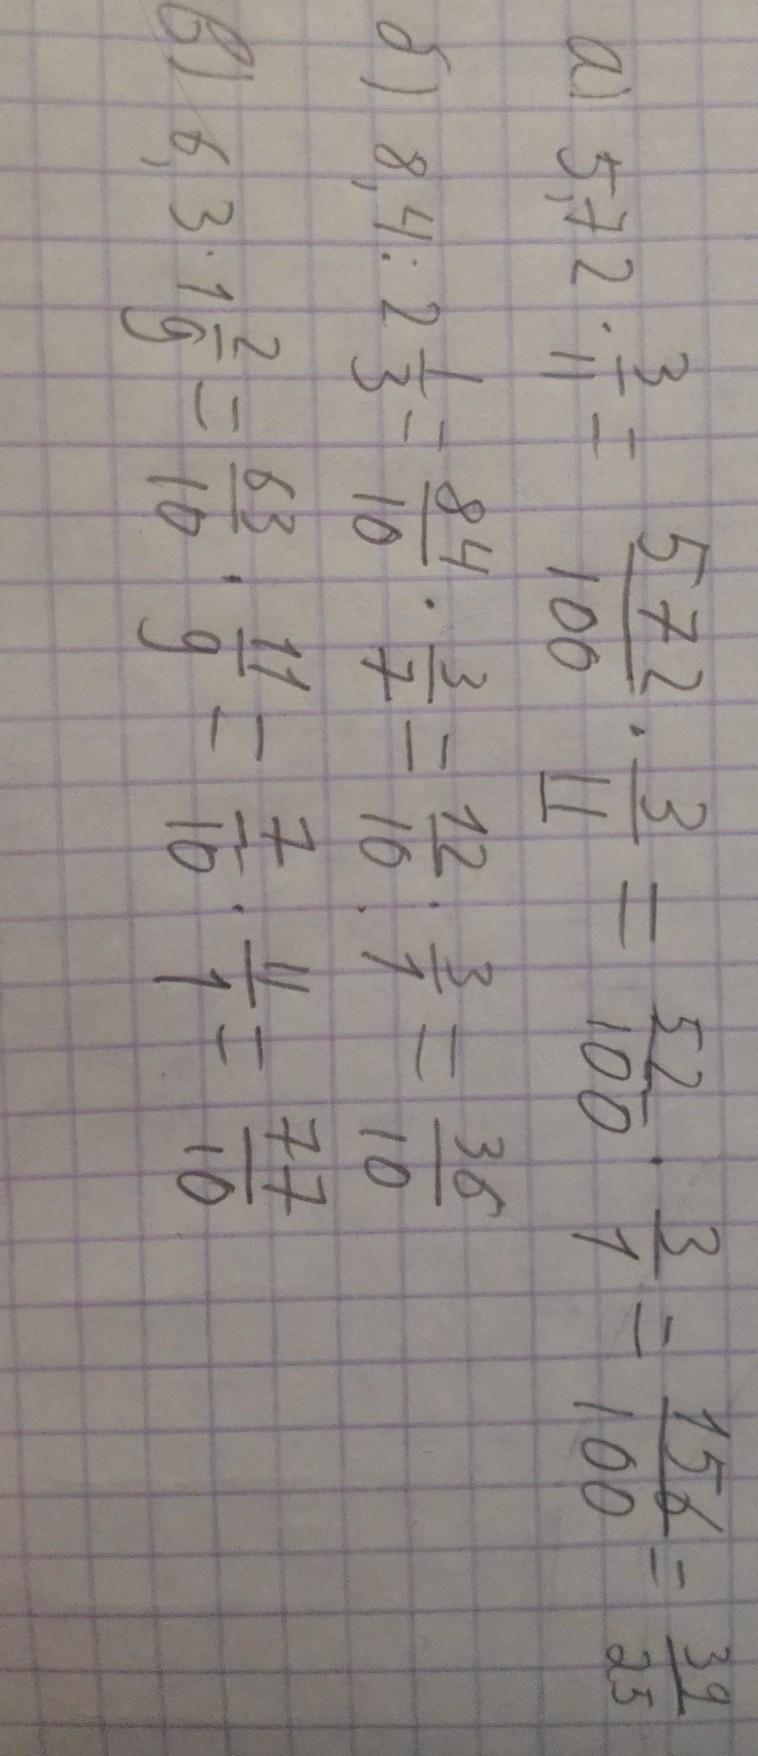 а) 5,72 · 3/11 = 572/100 · 3/11 = 52/100 · 3/1 = 156/100 = 39/25
б) 8,4 : 2 1/3 = 84/10 · 3/7 = 12/10 · 3/1 = 36/10
в) 6,3 · 1 2/9 = 63/10 · 11/9 = 7/10 · 11/1 = 77/10